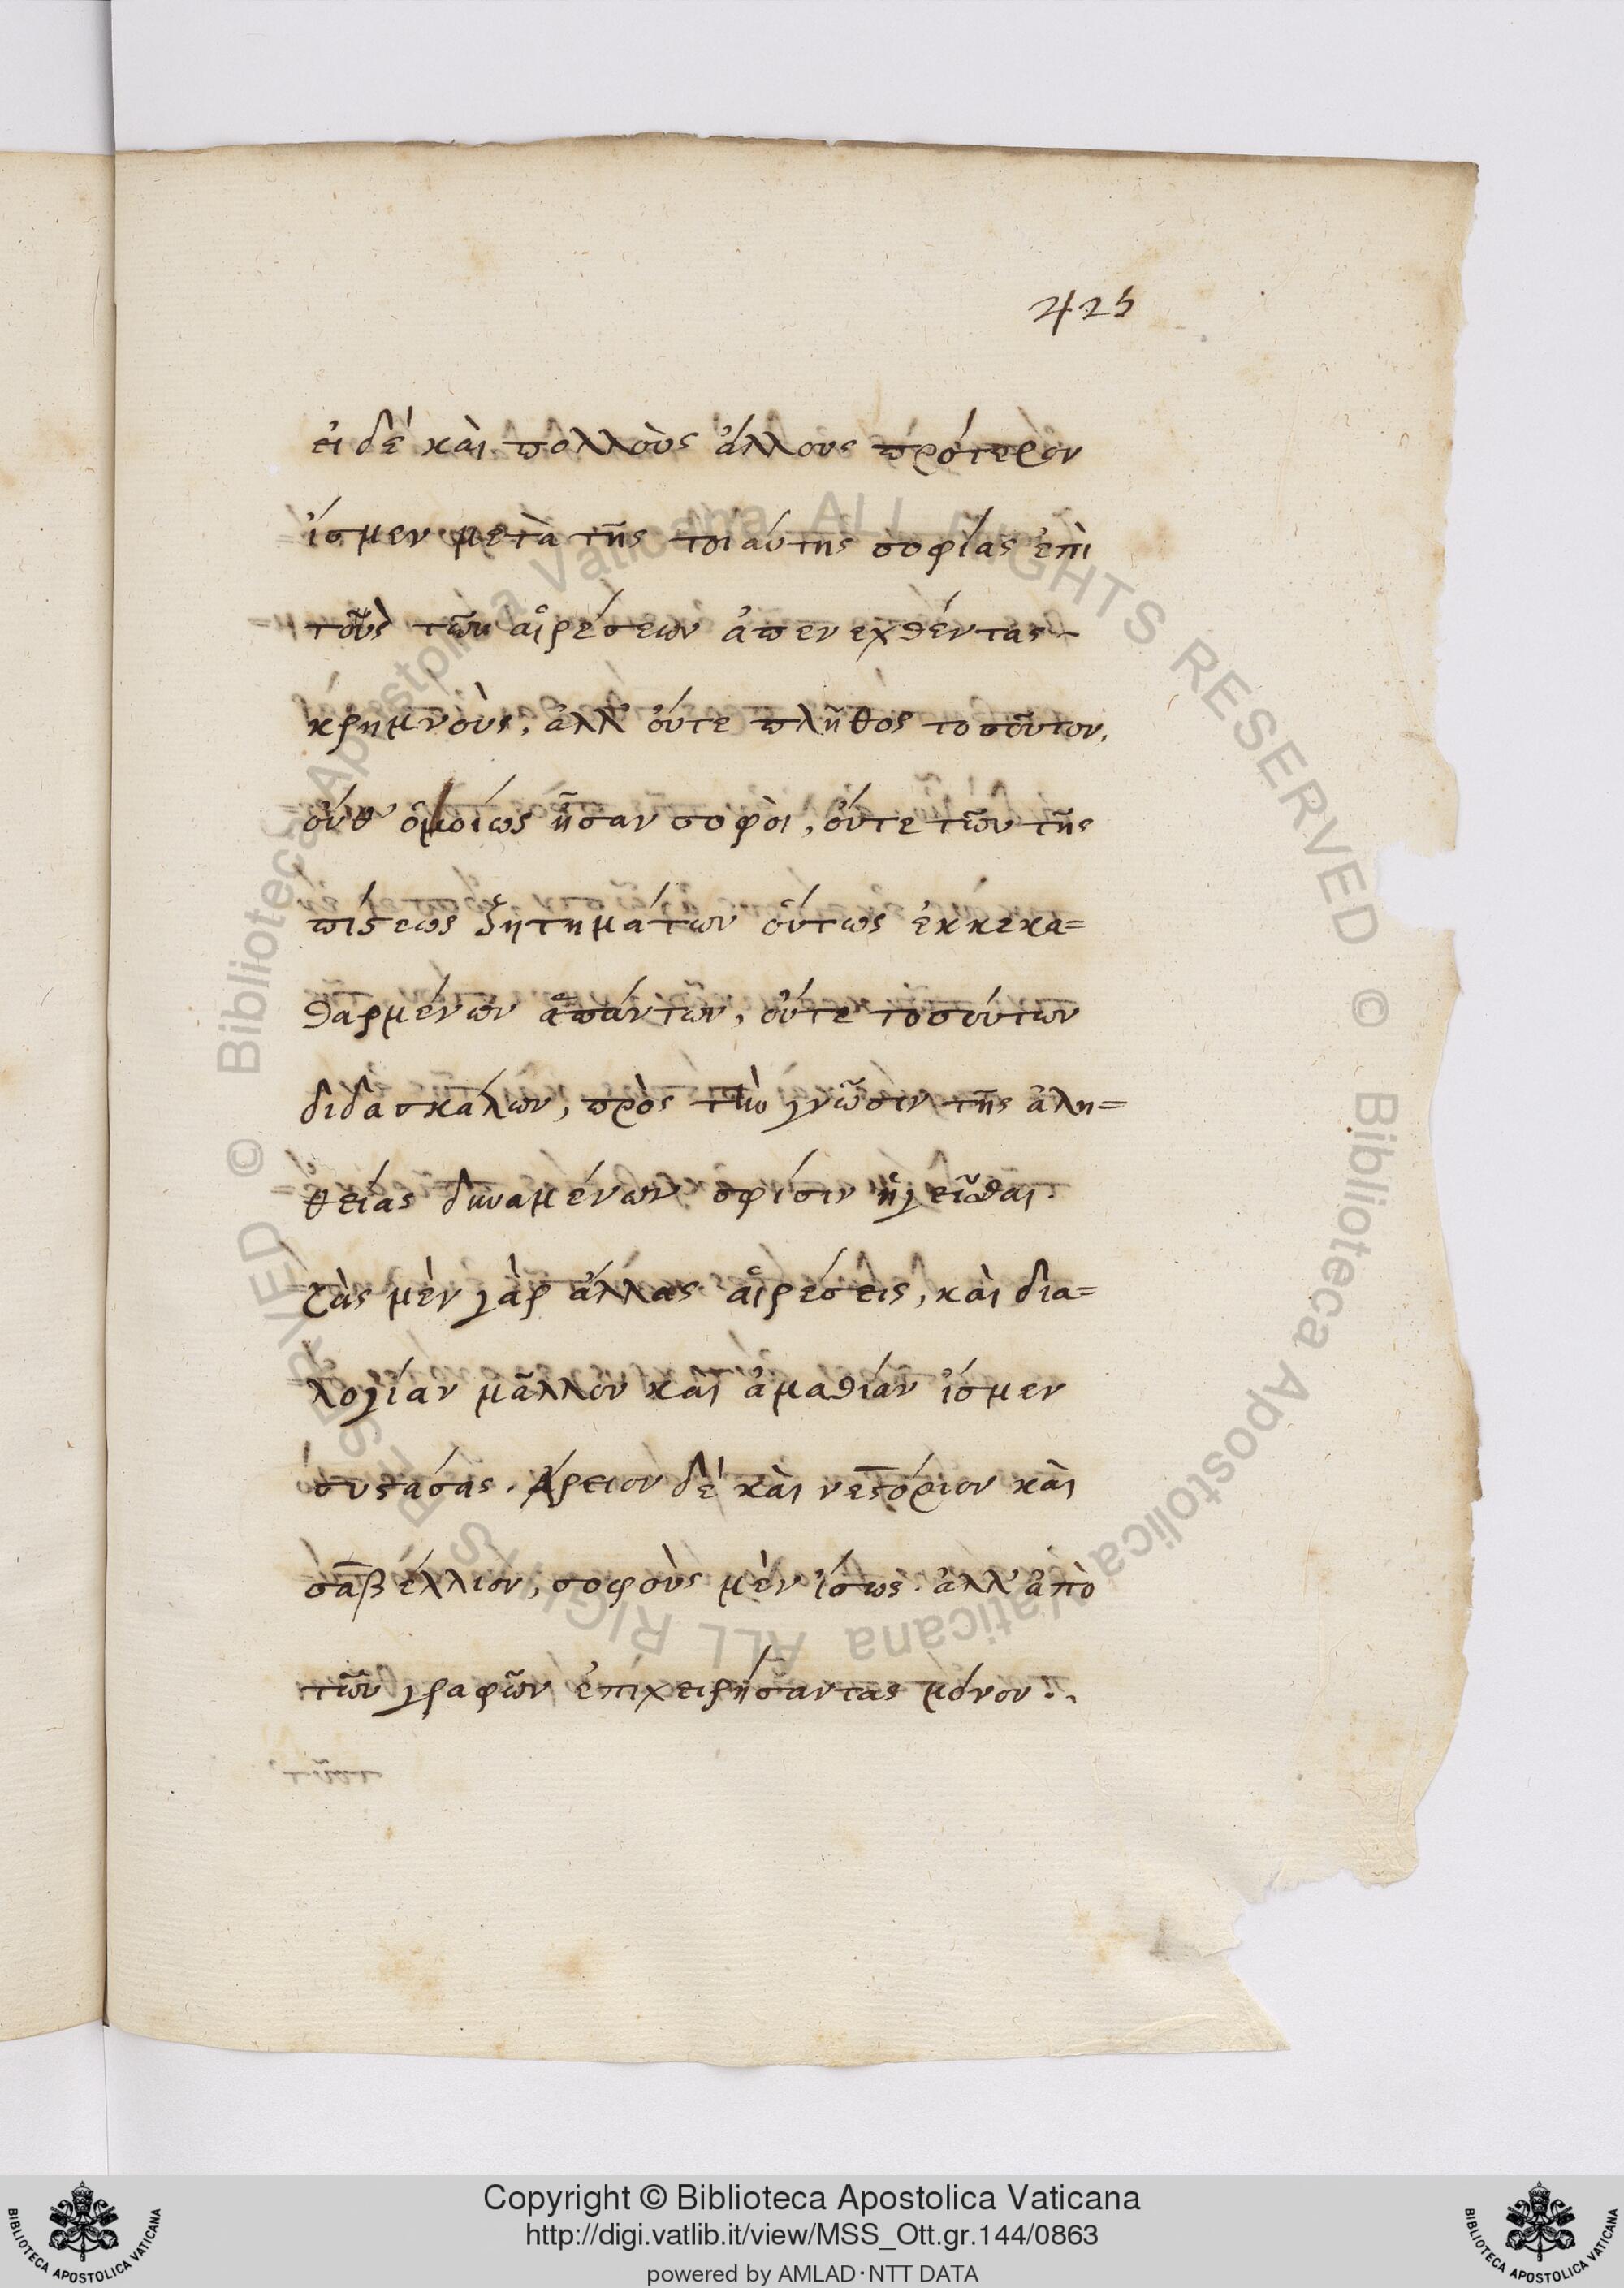 425
εἰ δὲ καὶ πολλοὺς ἄλλους πρότερον
ἴσμεν μετὰ τῆς τοιαύτης σοφίας ἐπὶ
τοὺς τῶν αἱρέσεων ἀπενεχθέντας
κρημνοὺς, ἀλλ' οὔτε πλῆθος τοσοῦτον,
οὔθ' ὁμοίως ἦσαν σοφοὶ, οὔτε τῶν τῆς
πίστεως ζητημάτων οὕτως ἐκκεκα=
θαρμένων ἁπάντων, οὔτε τοσούτων
διδασκάλων, πρὸς τὴν γνῶσιν τῆς ἀλη=
θείας δυναμένων σφίσιν ἡγεῖσθαι.
τὰς μὲν γὰρ ἄλλας αἱρέσεις, καὶ δια=
λογίαν μᾶλλον καὶ ἀμαθίαν ἴσμεν
συστάσας. Ἄρειον δὲ καὶ νεστόριον καὶ
σαβέλλιον, σοφοὺς μὲν ἴσως. ἀλλ' ἀπὸ
τῶν γραφῶν ἐπιχειρήσαντας μόνον..
© Biblioteca Apostolica Vaticana ALL RIGHTS RESERVED © Biblioteca Apostolica Vaticana ALL RIGHTS RESERVED
BIBLIOTECA APOSTOLICA VATICANA
Copyright © Biblioteca Apostolica Vaticana
http://digi.vatlib.it/view/MSS_Ott.gr.144/0863
powered by AMLAD·NTT DATA
BIBLIOTECA APOSTOLICA VATICANA